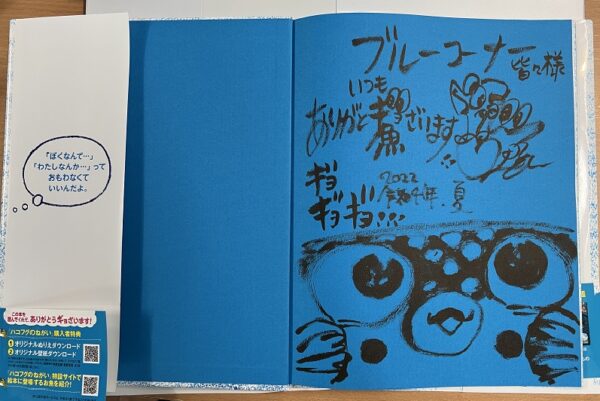 「ぼくなんて…」
「わたしなんか…」って
おもわなくて
いいんだよ。
この本を
選んでくれて、ありがとうギョざいます!
「ハコフグのねがい」購入者特典
1 オリジナルぬりえダウンロード
2 オリジナル壁紙ダウンロード
「ハコフグのねがい」特設サイトで
絵本に登場するお魚を紹介!
ブルーコーナー
皆々様
いつも
ありがと ございます
ギョ
ギョギョ!!!
2022
令和4年 夏